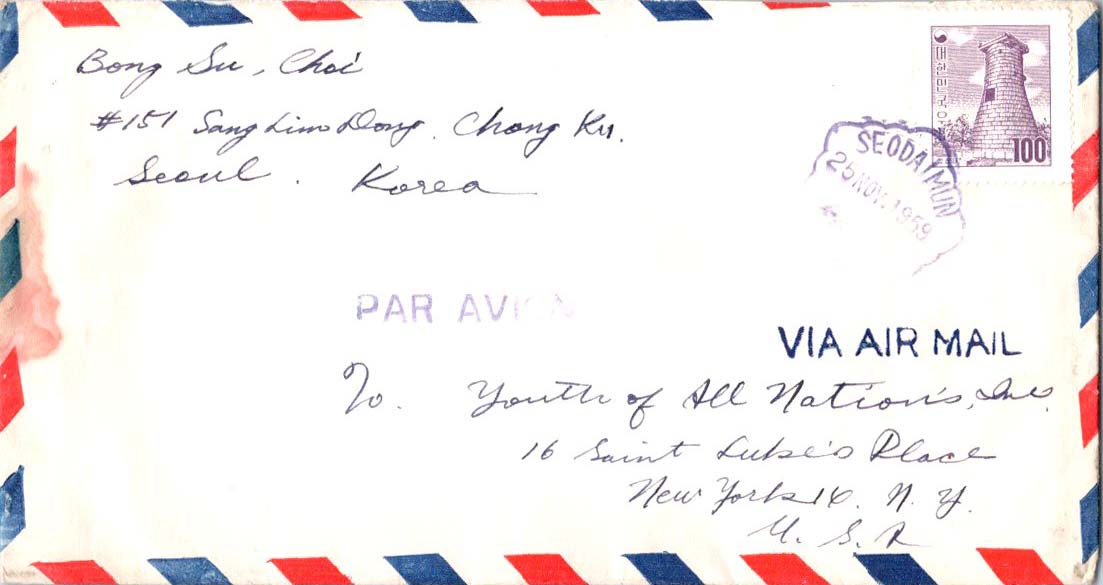 Bong Su, Choi
#151 Sang Lim Dong. Chong Ku.
Seoul. Korea
대한민국우표
100
SEODAIMUN
25 NOV. 1959
PAR AVION
VIA AIR MAIL
To. Youth of All Nation's, Inc.
16 Saint Luke's Place
New York 14. N. Y.
U. S. A